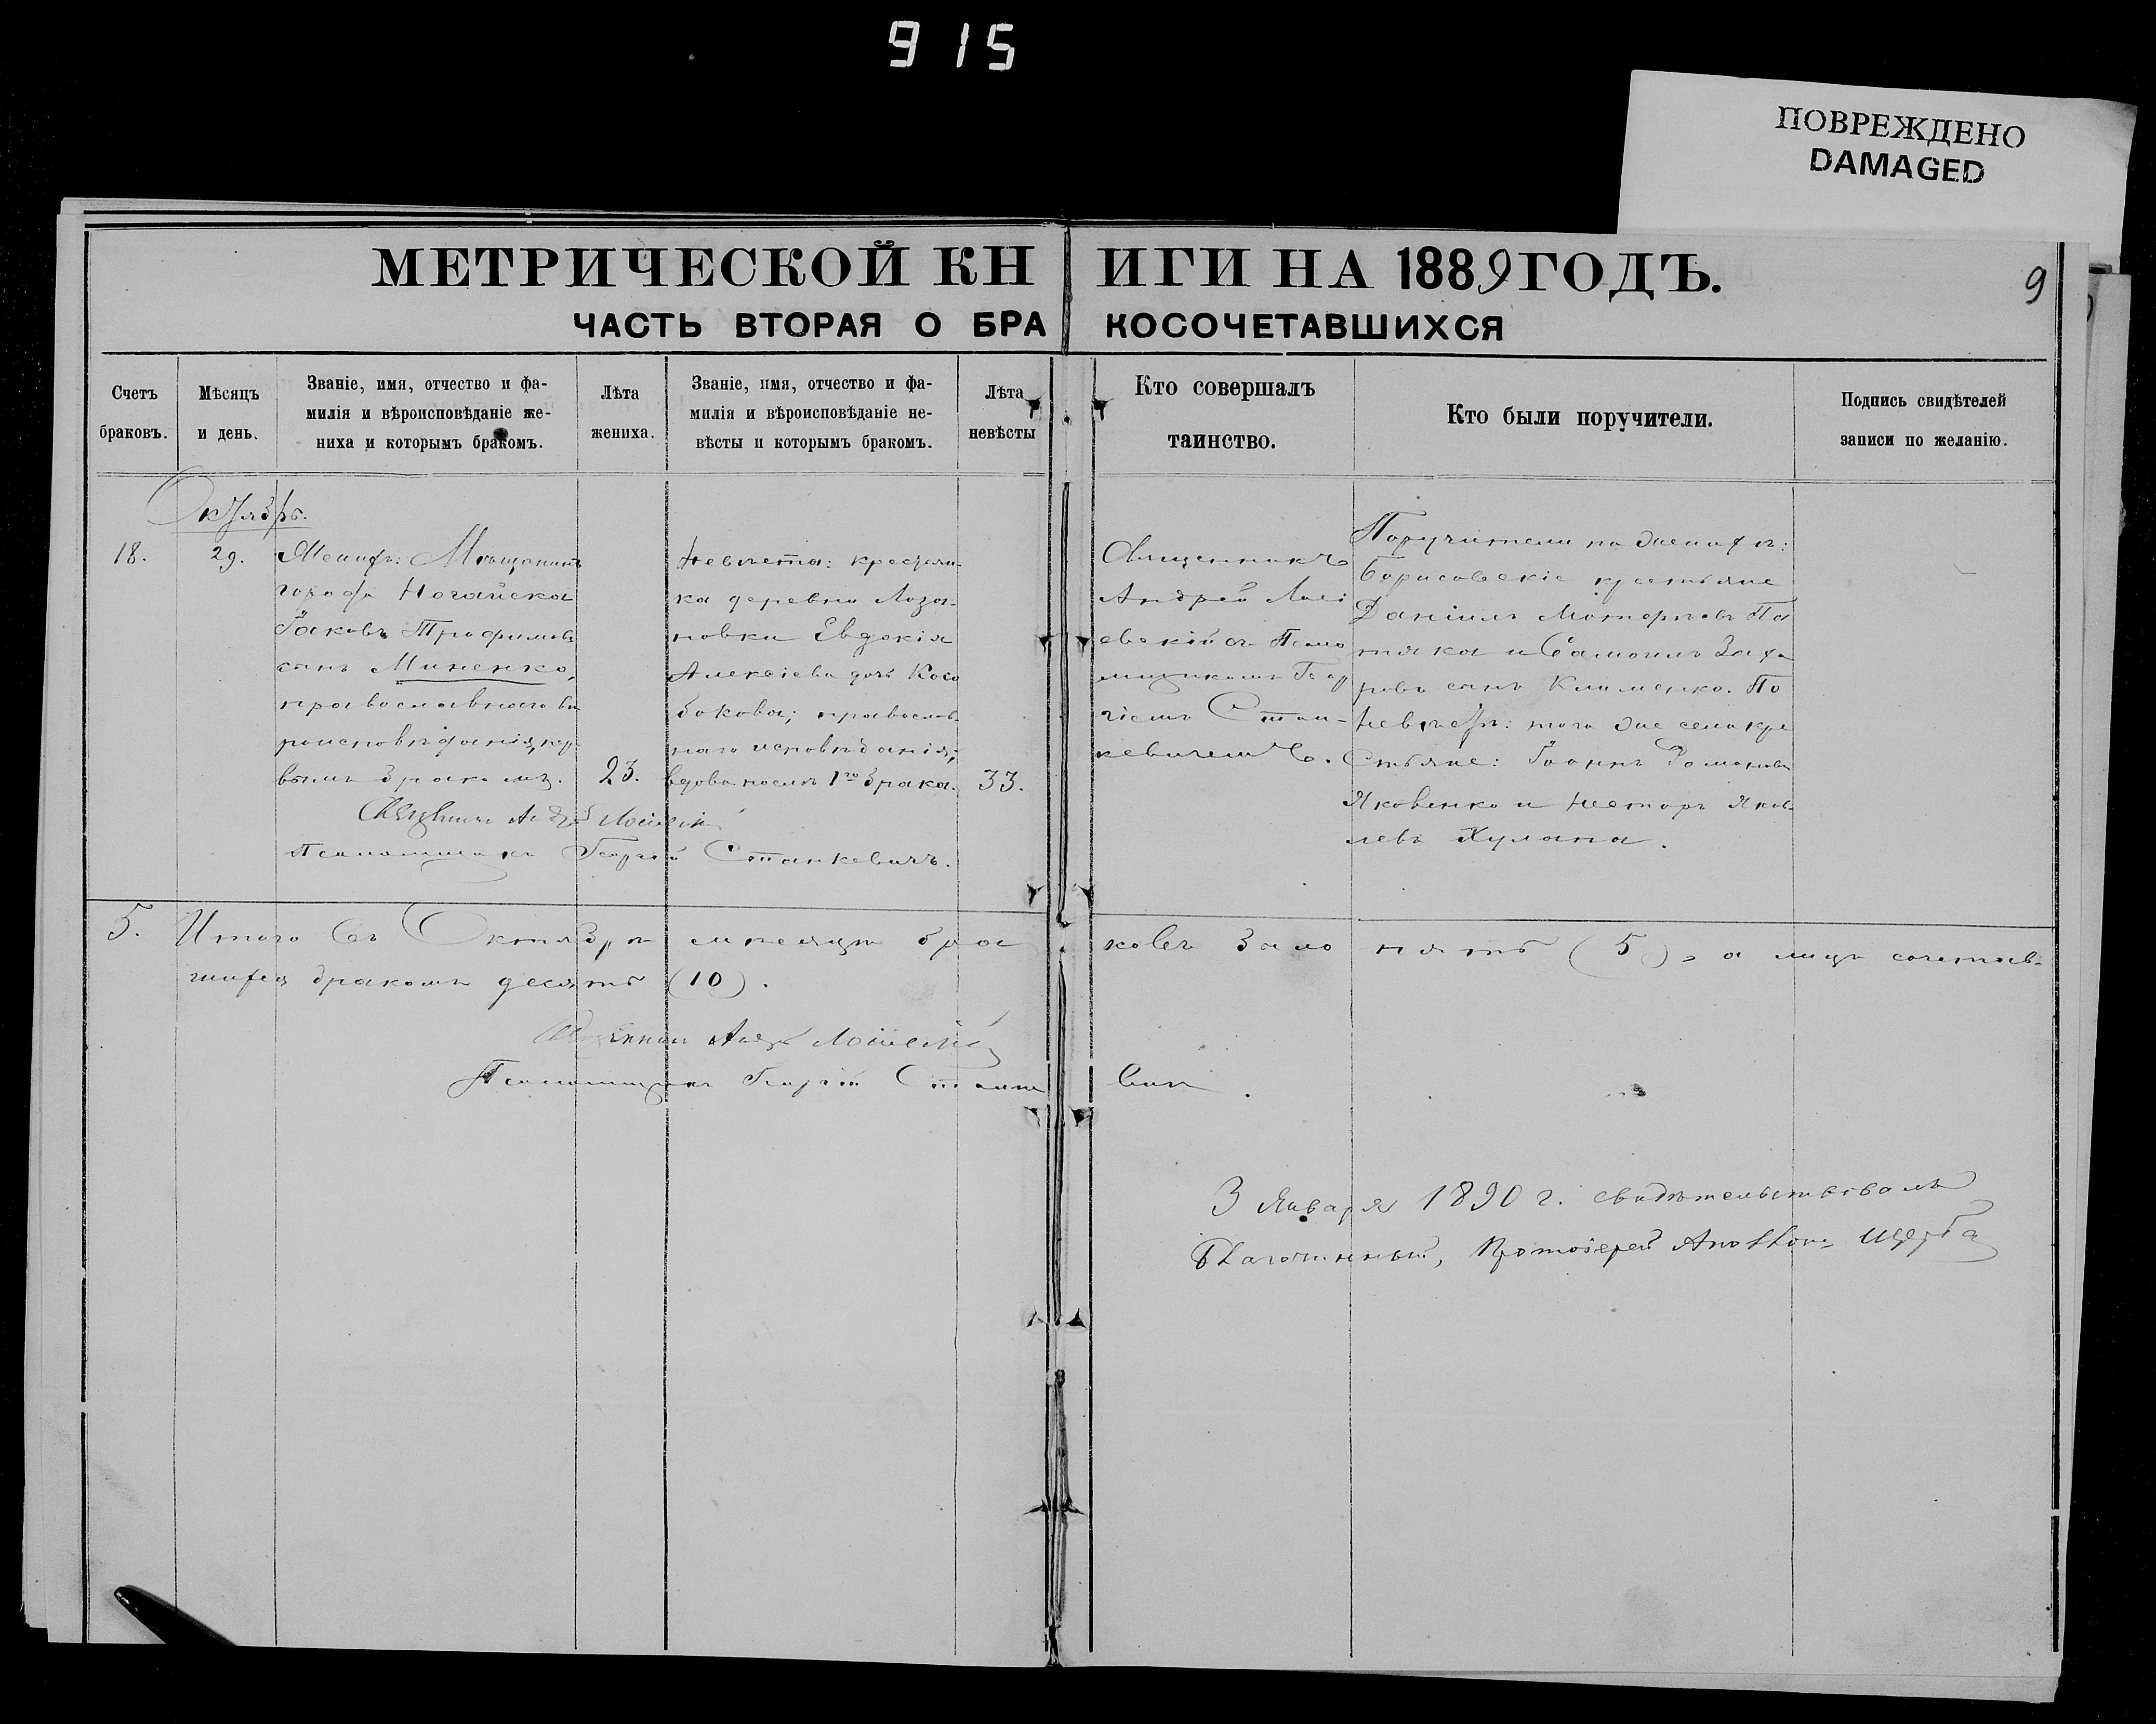 915
ПОВРЕЖДЕНО
DAMAGED
МЕТРИЧЕСКОЙ КНИГИ НА 1889 ГОДЪ.
9
ЧАСТЬ ВТОРАЯ О БРАКОСОЧЕТАВШИХСЯ
Счетъ
браковъ.
Мѣсяцъ
и день.
Званіе, имя, отчество и фа-
милія и вѣроисповѣданіе же-
ниха и которымъ бракомъ.
Лѣта
жениха.
Званіе, имя, отчество и фа-
милія и вѣроисповѣданіе не-
вѣсты и которымъ бракомъ.
Лѣта
невѣсты
Кто совершалъ
таинство.
Кто были поручители.
Подпись свидѣтелей
записи по желанію.
Октябрь.
18.
29.
Женихъ: Мѣщанинъ
города Ногайска
Іаковъ Трофимовъ
сынъ Миненко,
православнаго вѣ
роисповѣданія, пер
вымъ бракомъ.
23.
Невѣста: крестьян-
ка деревни Лозо-
новки Евдокія
Алексіева дочь Косо
бокова; православ-
наго исповѣданія;
вдова послѣ 1го брака.
33.
Священникъ
Андрей
съ Псало
мщикомъ Геор
гіемъ Стан-
кевичемъ.
Поручители по женихѣ:
Борисовскіе крестьяне
Даніилъ
и Самоилъ Заха
ровъ сынъ Клименко. По
невѣстѣ: того же села кре
стьяне: Іоаннъ Романовъ
Яковенко и Несторъ Яков
левъ Хулана.
Священникъ Андрей
Псаломщикъ Георгій Станкевичъ.
5. Итого въ Октябрѣ мѣсяцѣ браковъ было пять (5), а лицъ сочетав-
шихся бракомъ десять (10).
Священникъ Андрей
Псаломщикъ Георгій
3 Января 1890 г. свидѣтельствовалъ
Благочинный, Протоіерей Щерба